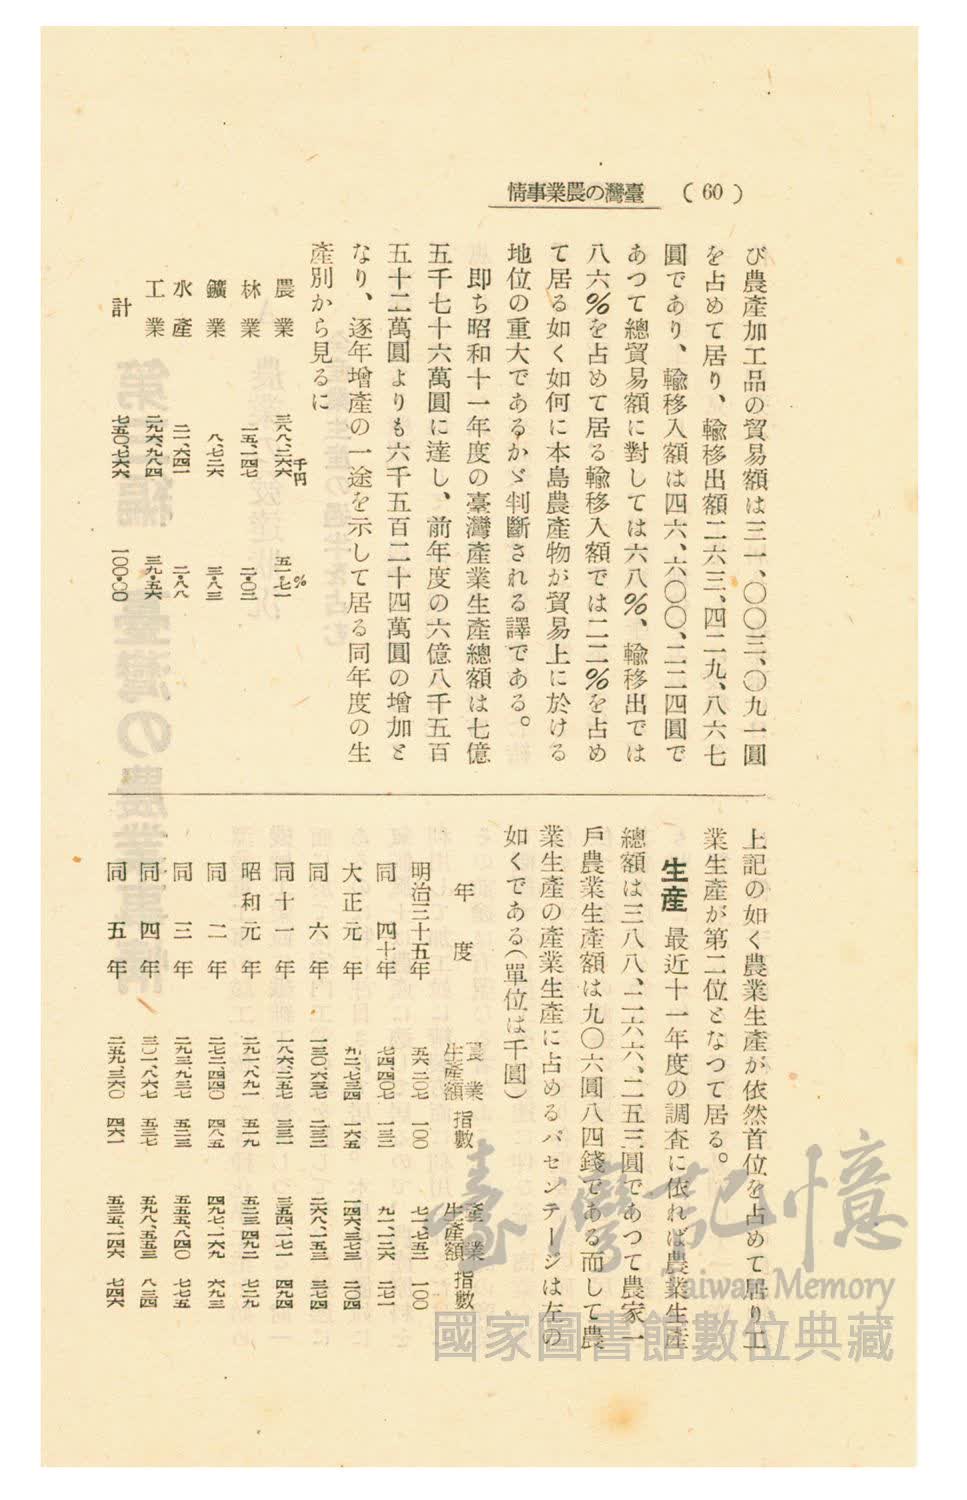 臺灣の農業事情 (60)
び農產加工品の貿易額は三一、〇〇三、〇九一圓
を占めて居り、輸移出額二六三、四二九、八六七
圓であり、輸移入額は四六、六〇〇、二二四圓で
あつて總貿易額に對しては六八%、輸移出では
八六%を占めて居る輸移入額では二二%を占め
て居る如く如何に本島農產物が貿易上に於ける
地位の重大であるかゞ判斷される譯である。
即ち昭和十一年度の臺灣產業生產總額は七億
五千七十六萬圓に達し、前年度の六億八千五百
五十二萬圓よりも六千五百二十四萬圓の增加と
なり、逐年增產の一途を示して居る同年度の生
產別から見るに
千円 %
農業 三八八、二六六 五一・七一
林業 一五、一四七 二・〇三
鑛業 八、七二六 三・八三
水產 二一、六四一 二・八八
工業 二九六、九八四 三九・五六
計 七五〇、七六六 一〇〇・〇〇
上記の如く農業生產が依然首位を占めて居り工
業生產が第二位となつて居る。
生産 最近十一年度の調査に依れば農業生產
總額は三八八、二六六、二五三圓であつて農家一
戶農業生產額は九〇六圓八四錢である而して農
業生產の產業生產に占めるパセンテージは左の
如くである(單位は千圓)
年度 農業生產額 指數 產業生產額 指數
明治三十五年 五六、二〇七 一〇〇 七一、七五二 一〇〇
同 四十年 七四、四〇七 一三二 九一、一二六 二七一
大正元年 九二、七三四 一六五 一四六、三七三 二〇四
同 六年 一三〇、六三七 二三二 二六八、一五三 三七四
同十一年 一八六、二五七 三三一 三五四、一七一 四九四
昭和元年 二九一、八九一 五一九 五二三、四九二 七二九
同 二年 二七二、四四〇 四八五 四九七、一六九 六九三
同 三年 二九三、九三七 五二三 五五五、八四〇 七七五
同 四年 三〇一、八六七 五三七 五九八、五五三 八三四
同 五年 二五九、三六〇 四六一 五三五、一四六 七四六
臺灣記憶
Taiwan Memory
國家圖書館數位典藏